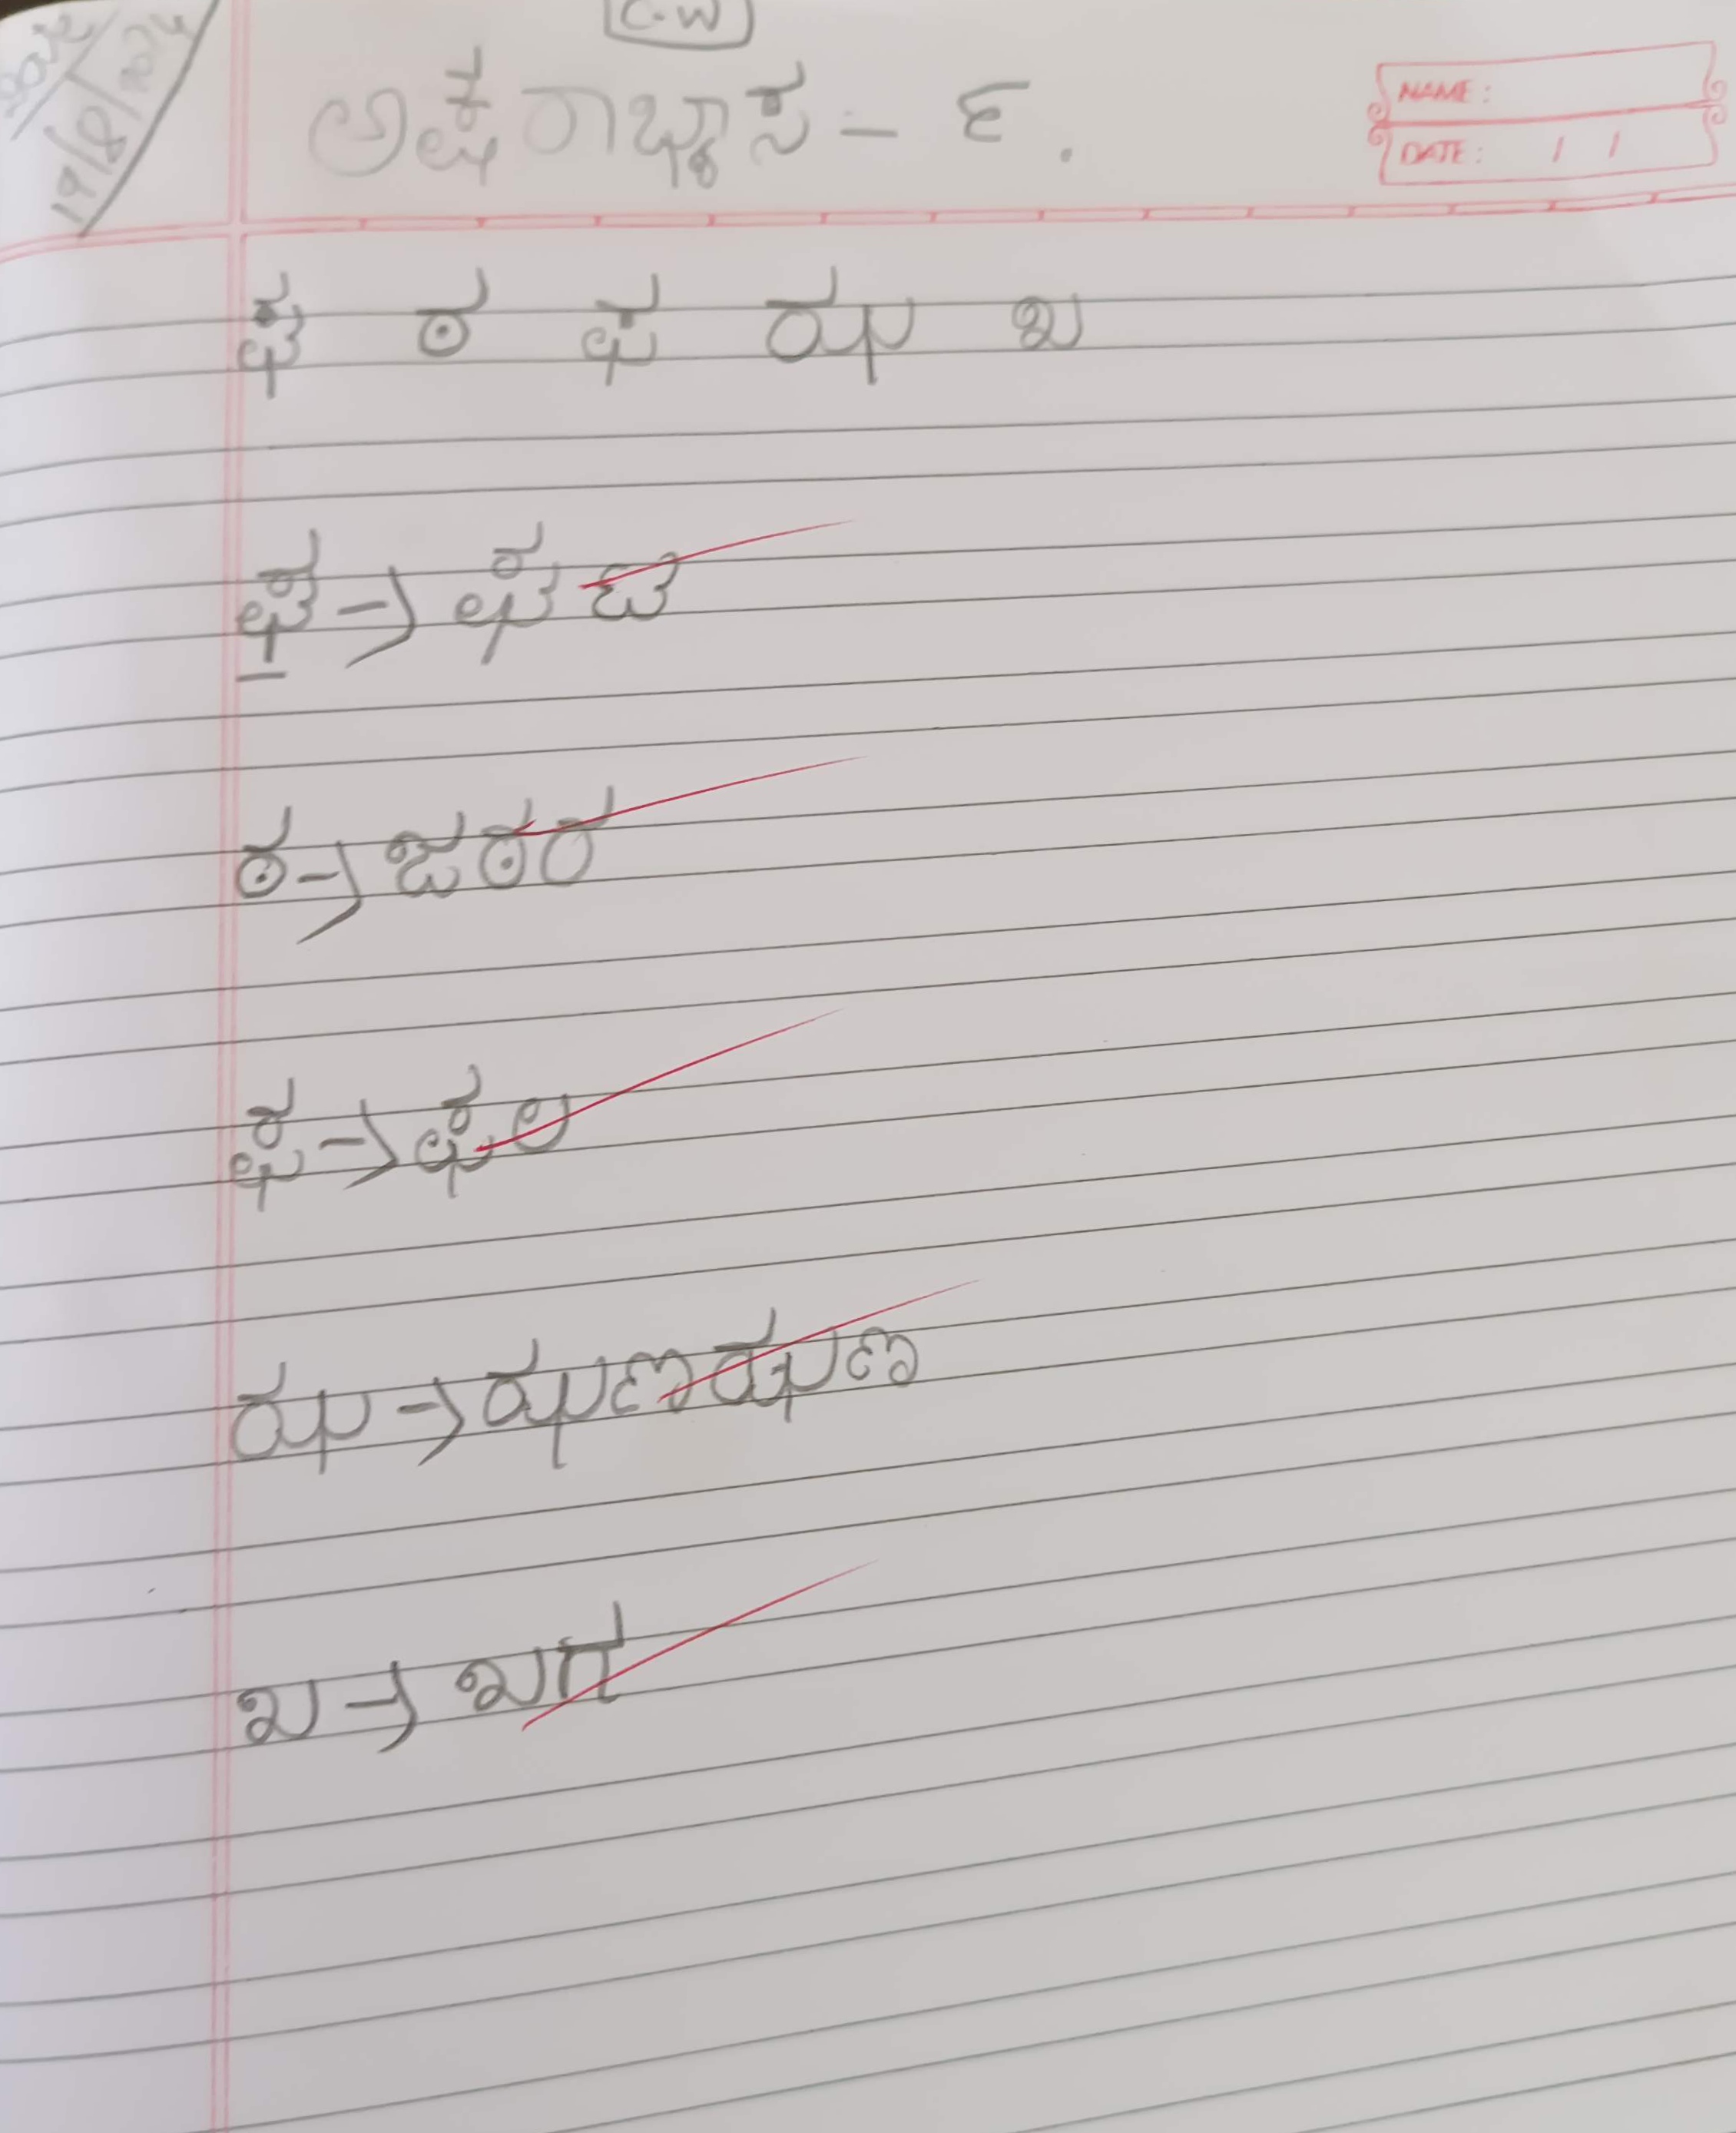 Date
19/8/2024
C.W
ಅಕ್ಷರಾಭ್ಯಾಸ - ೬.
NAME:
DATE: / /
ಘ ಠ ಫ ಝ ಖ
ಘ → ಘಟ
ಠ → ಜಠರ
ಫ → ಫಲ
ಝ → ಝಣಝಣ
ಖ → ಖಗ